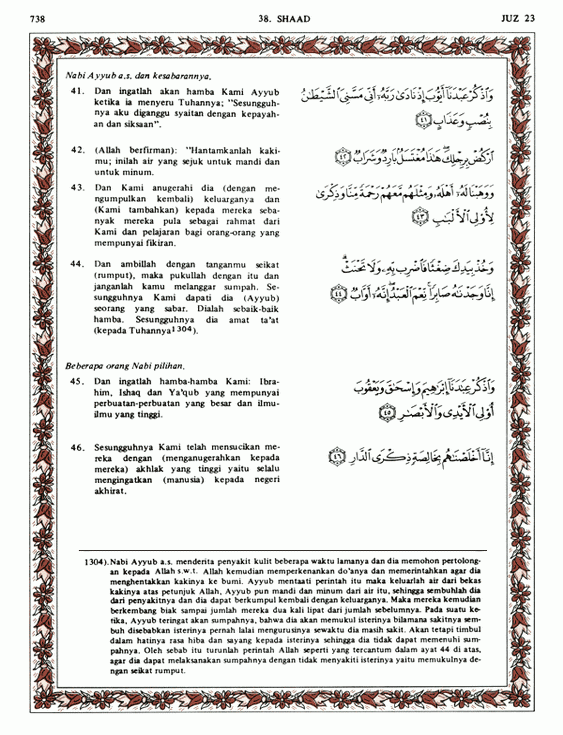 738
38. SHAAD
JUZ 23
Nabi Ayyub a.s. dan kesabarannya.
41. Dan ingatlah akan hamba Kami Ayyub
ketika ia menyeru Tuhannya; "Sesungguh-
nya aku diganggu syaitan dengan kepayah-
an dan siksaan".
وَاذْكُرْ عَبْدَنَا أَيُّوبَ إِذْ نَادَىٰ رَبَّهُ أَنِّي مَسَّنِيَ الشَّيْطَٰنُ
بِنُصْبٍ وَعَذَابٍ ﴿٤١﴾
42. (Allah berfirman): "Hantamkanlah kaki-
mu; inilah air yang sejuk untuk mandi dan
untuk minum.
ارْكُضْ بِرِجْلِكَ هَٰذَا مُغْتَسَلٌ بَارِدٌ وَشَرَابٌ ﴿٤٢﴾
43. Dan Kami anugerahi dia (dengan me-
ngumpulkan kembali) keluarganya dan
(Kami tambahkan) kepada mereka seba-
nyak mereka pula sebagai rahmat dari
Kami dan pelajaran bagi orang-orang yang
mempunyai fikiran.
وَوَهَبْنَا لَهُ أَهْلَهُ وَمِثْلَهُم مَّعَهُمْ رَحْمَةً مِّنَّا وَذِكْرَىٰ
لِأُولِي الْأَلْبَٰبِ ﴿٤٣﴾
44. Dan ambillah dengan tanganmu seikat
(rumput), maka pukullah dengan itu dan
janganlah kamu melanggar sumpah. Se-
sungguhnya Kami dapati dia (Ayyub)
seorang yang sabar. Dialah sebaik-baik
hamba. Sesungguhnya dia amat ta'at
(kepada Tuhannya1304).
وَخُذْ بِيَدِكَ ضِغْثًا فَاضْرِب بِّهِ وَلَا تَحْنَثْ
إِنَّا وَجَدْنَٰهُ صَابِرًا نِّعْمَ الْعَبْدُ إِنَّهُ أَوَّابٌ ﴿٤٤﴾
Beberapa orang Nabi pilihan.
45. Dan ingatlah hamba-hamba Kami: Ibra-
him, Ishaq dan Ya'qub yang mempunyai
perbuatan-perbuatan yang besar dan ilmu-
ilmu yang tinggi.
وَاذْكُرْ عِبَٰدَنَا إِبْرَٰهِيمَ وَإِسْحَٰقَ وَيَعْقُوبَ
أُولِي الْأَيْدِي وَالْأَبْصَٰرِ ﴿٤٥﴾
46. Sesungguhnya Kami telah mensucikan me-
reka dengan (menganugerahkan kepada
mereka) akhlak yang tinggi yaitu selalu
mengingatkan (manusia) kepada negeri
akhirat.
إِنَّا أَخْلَصْنَٰهُم بِخَالِصَةٍ ذِكْرَى الدَّارِ ﴿٤٦﴾
1304). Nabi Ayyub a.s. menderita penyakit kulit beberapa waktu lamanya dan dia memohon pertolong-
an kepada Allah s.w.t. Allah kemudian memperkenankan do'anya dan memerintahkan agar dia
menghentakkan kakinya ke bumi. Ayyub mentaati perintah itu maka keluarlah air dari bekas
kakinya atas petunjuk Allah, Ayyub pun mandi dan minum dari air itu, sehingga sembuhlah dia
dari penyakitnya dan dia dapat berkumpul kembali dengan keluarganya. Maka mereka kemudian
berkembang biak sampai jumlah mereka dua kali lipat dari jumlah sebelumnya. Pada suatu ke-
tika, Ayyub teringat akan sumpahnya, bahwa dia akan memukul isterinya bilamana sakitnya sem-
buh disebabkan isterinya pernah lalai mengurusinya sewaktu dia masih sakit. Akan tetapi timbul
dalam hatinya rasa hiba dan sayang kepada isterinya sehingga dia tidak dapat memenuhi sum-
pahnya. Oleh sebab itu turunlah perintah Allah seperti yang tercantum dalam ayat 44 di atas,
agar dia dapat melaksanakan sumpahnya dengan tidak menyakiti isterinya yaitu memukulnya de-
ngan seikat rumput.